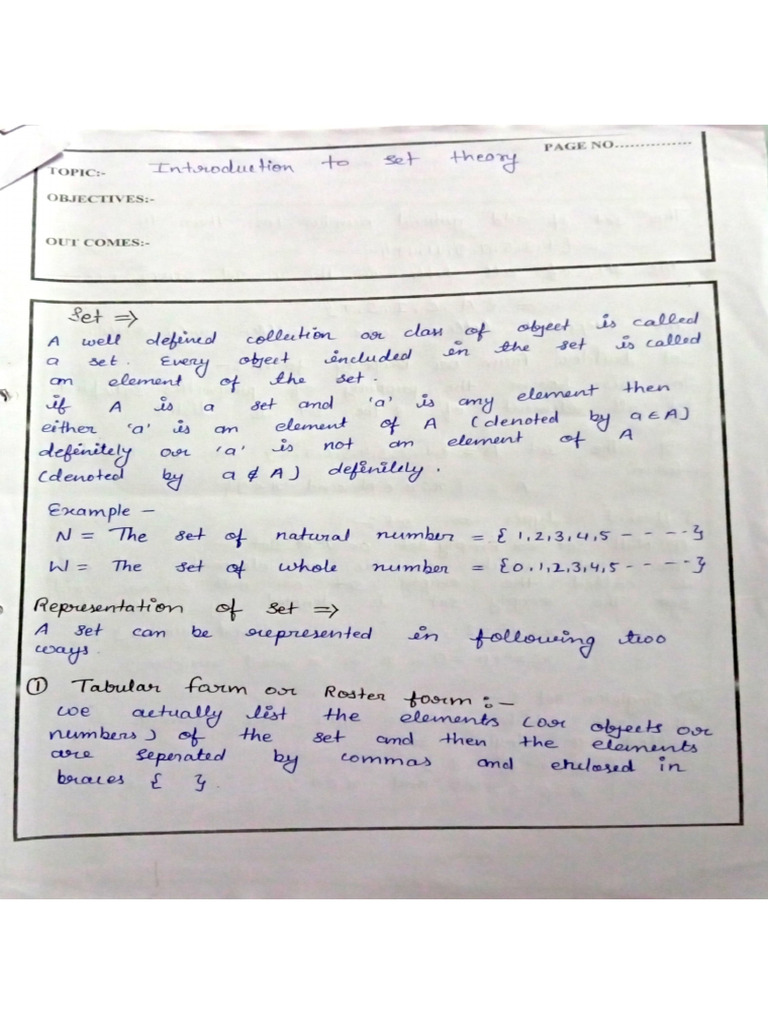 PAGE NO...............
TOPIC:- Introduction to set theory
OBJECTIVES:-
OUT COMES:-
Set ⇒
A well defined collection or class of object is called
a set. Every object included in the set is called
an element of the set.
if A is a set and 'a' is any element then
either 'a' is an element of A (denoted by a ∈ A)
definitely or 'a' is not an element of A
(denoted by a ∉ A) definitely.
Example –
N = The set of natural number = { 1,2,3,4,5 - - - -}
W = The set of whole number = {0,1,2,3,4,5 - - - -}
Representation of set ⇒
A set can be represented in following two
ways.
① Tabular farm or Roster form :-
we actually list the elements (or objects or
numbers) of the set and then the elements
are seperated by commas and enclosed in
braces { }.